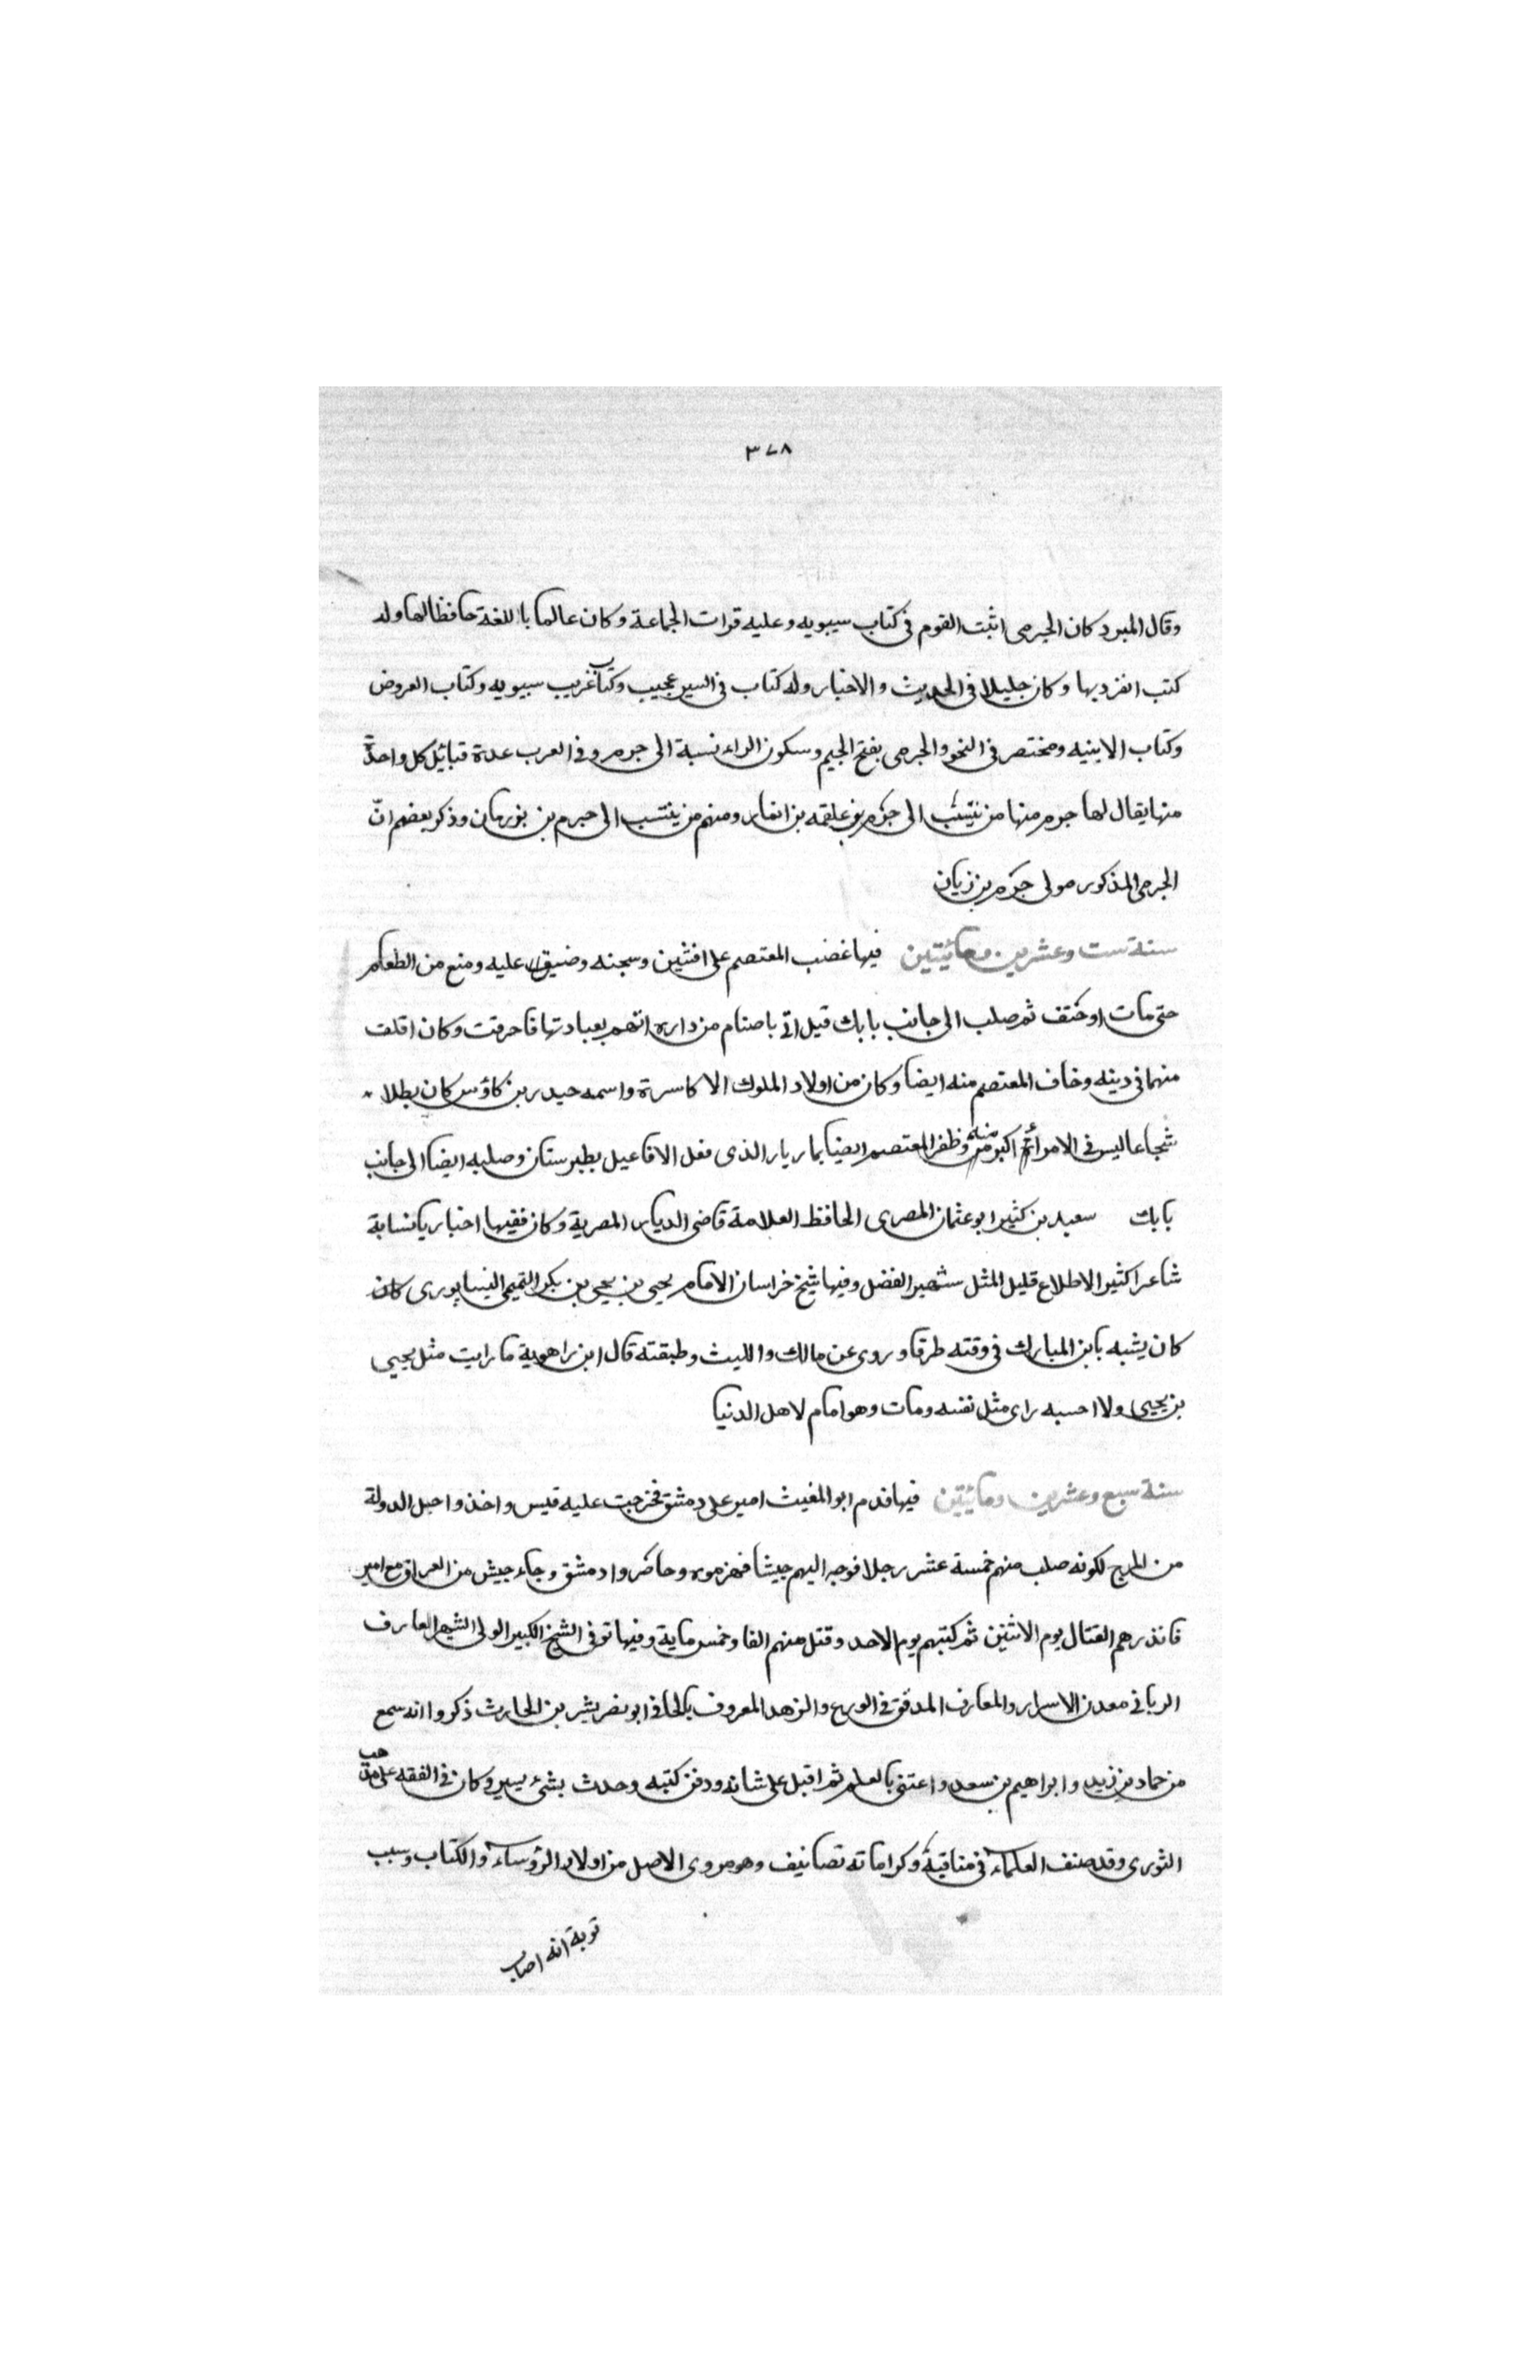 ٣٧٨
وقال المبرد كان الجرمى اثبت القوم فى كتاب سيبويه وعليه قرات الجماعة وكان عالما باللغة حافظا لها وله
كتب انفرد بها وكان جليلا فى الحديث والاخبار وله كتاب فى السير عجيب وكتاب غريب سيبويه وكتاب العروض
وكتاب الابنيه ومختصر فى النحو والجرمى بفتح الجيم وسكون الراء نسبة الى جرم وفى العرب عدة قبائل كل واحدة
منها يقال لها جرم منها من ينتسب الى جرم بن علقمه بن انمار ومنهم من ينتسب الى جرم بن بن زبان وذكر بعضهم انّ
الجرمى المذكور مولى جرم بن زبان
سنة ست وعشرين ومائيتين فيها غضب المعتصم على افشين وسجنه وضيق عليه ومنع من الطعام
حتى مات اوخنق ثم صلب الى جانب بابك قيل اتى باصنام من داره اتهم بعبادتها فاحرقت وكان اقلف
متهما فى دينه وخاف المعتصم منه ايضا وكان من اولاد الملوك الاكاسرة واسمه حيدر بن كاؤس كان بطلا
شجاعا ليس فى الامرائم اكبر منه وظفر المعتصم ايضا بمازيار الذى فعل الافاعيل بطبرستان وصلبه ايضا الى جانب
بابك سعيد بن كثير ابو عثمان المصرى الحافظ العلامة قاضى الديار المصرية وكان فقيها اخباريا نسابة
شاعرا كثير الاطلاع قليل المثل شهير الفضل وفيها شيخ خراسان الامام يحيى بن يحيى بن بكر التميمى النيسابورى كان
كان يشبه بابن المبارك فى وقته طرفا وروى عن مالك والليث وطبقته قال ابن راهوية ما رايت مثل يحيى
بن يحيى ولا احسبه راى مثل نفسه ومات وهو امام لاهل الدنيا
سنة سبع وعشرين ومائيتين فيها قدم ابو المغيث امير على دمشق فخرجت عليه قيس واخذوا حبل الدولة
من المرج لكونه صلب منهم خمسة عشر رجلا فوجه اليهم جيشا فهزموه وحاضروا دمشق وجاء جيش من العراق مع امير
فانذرهم القتال يوم الاثنين ثم كبتهم يوم الاحد وقتل منهم الفا وخمس ماية وفيها توفى الشيخ الكبير الولى الشهير العارف
الربانى معدن الاسرار والمعارف المدقق فى الورع والزهد المعروف بالحافى ابو نصر بشر بن الحارث ذكروا انه سمع
من حماد بن زيد وابراهيم بن سعد واعتنى بالعلم ثم اقبل على شانه ودفن كتبه وحدث بشئ يسير وكان فى الفقه على مذهب
الثورى وقد صنف العلماء فى مناقبة وكراماته تصانيف وهو مروى الاصل من اولاد الرؤساء والكتاب وسبب
توبة انه اصاب